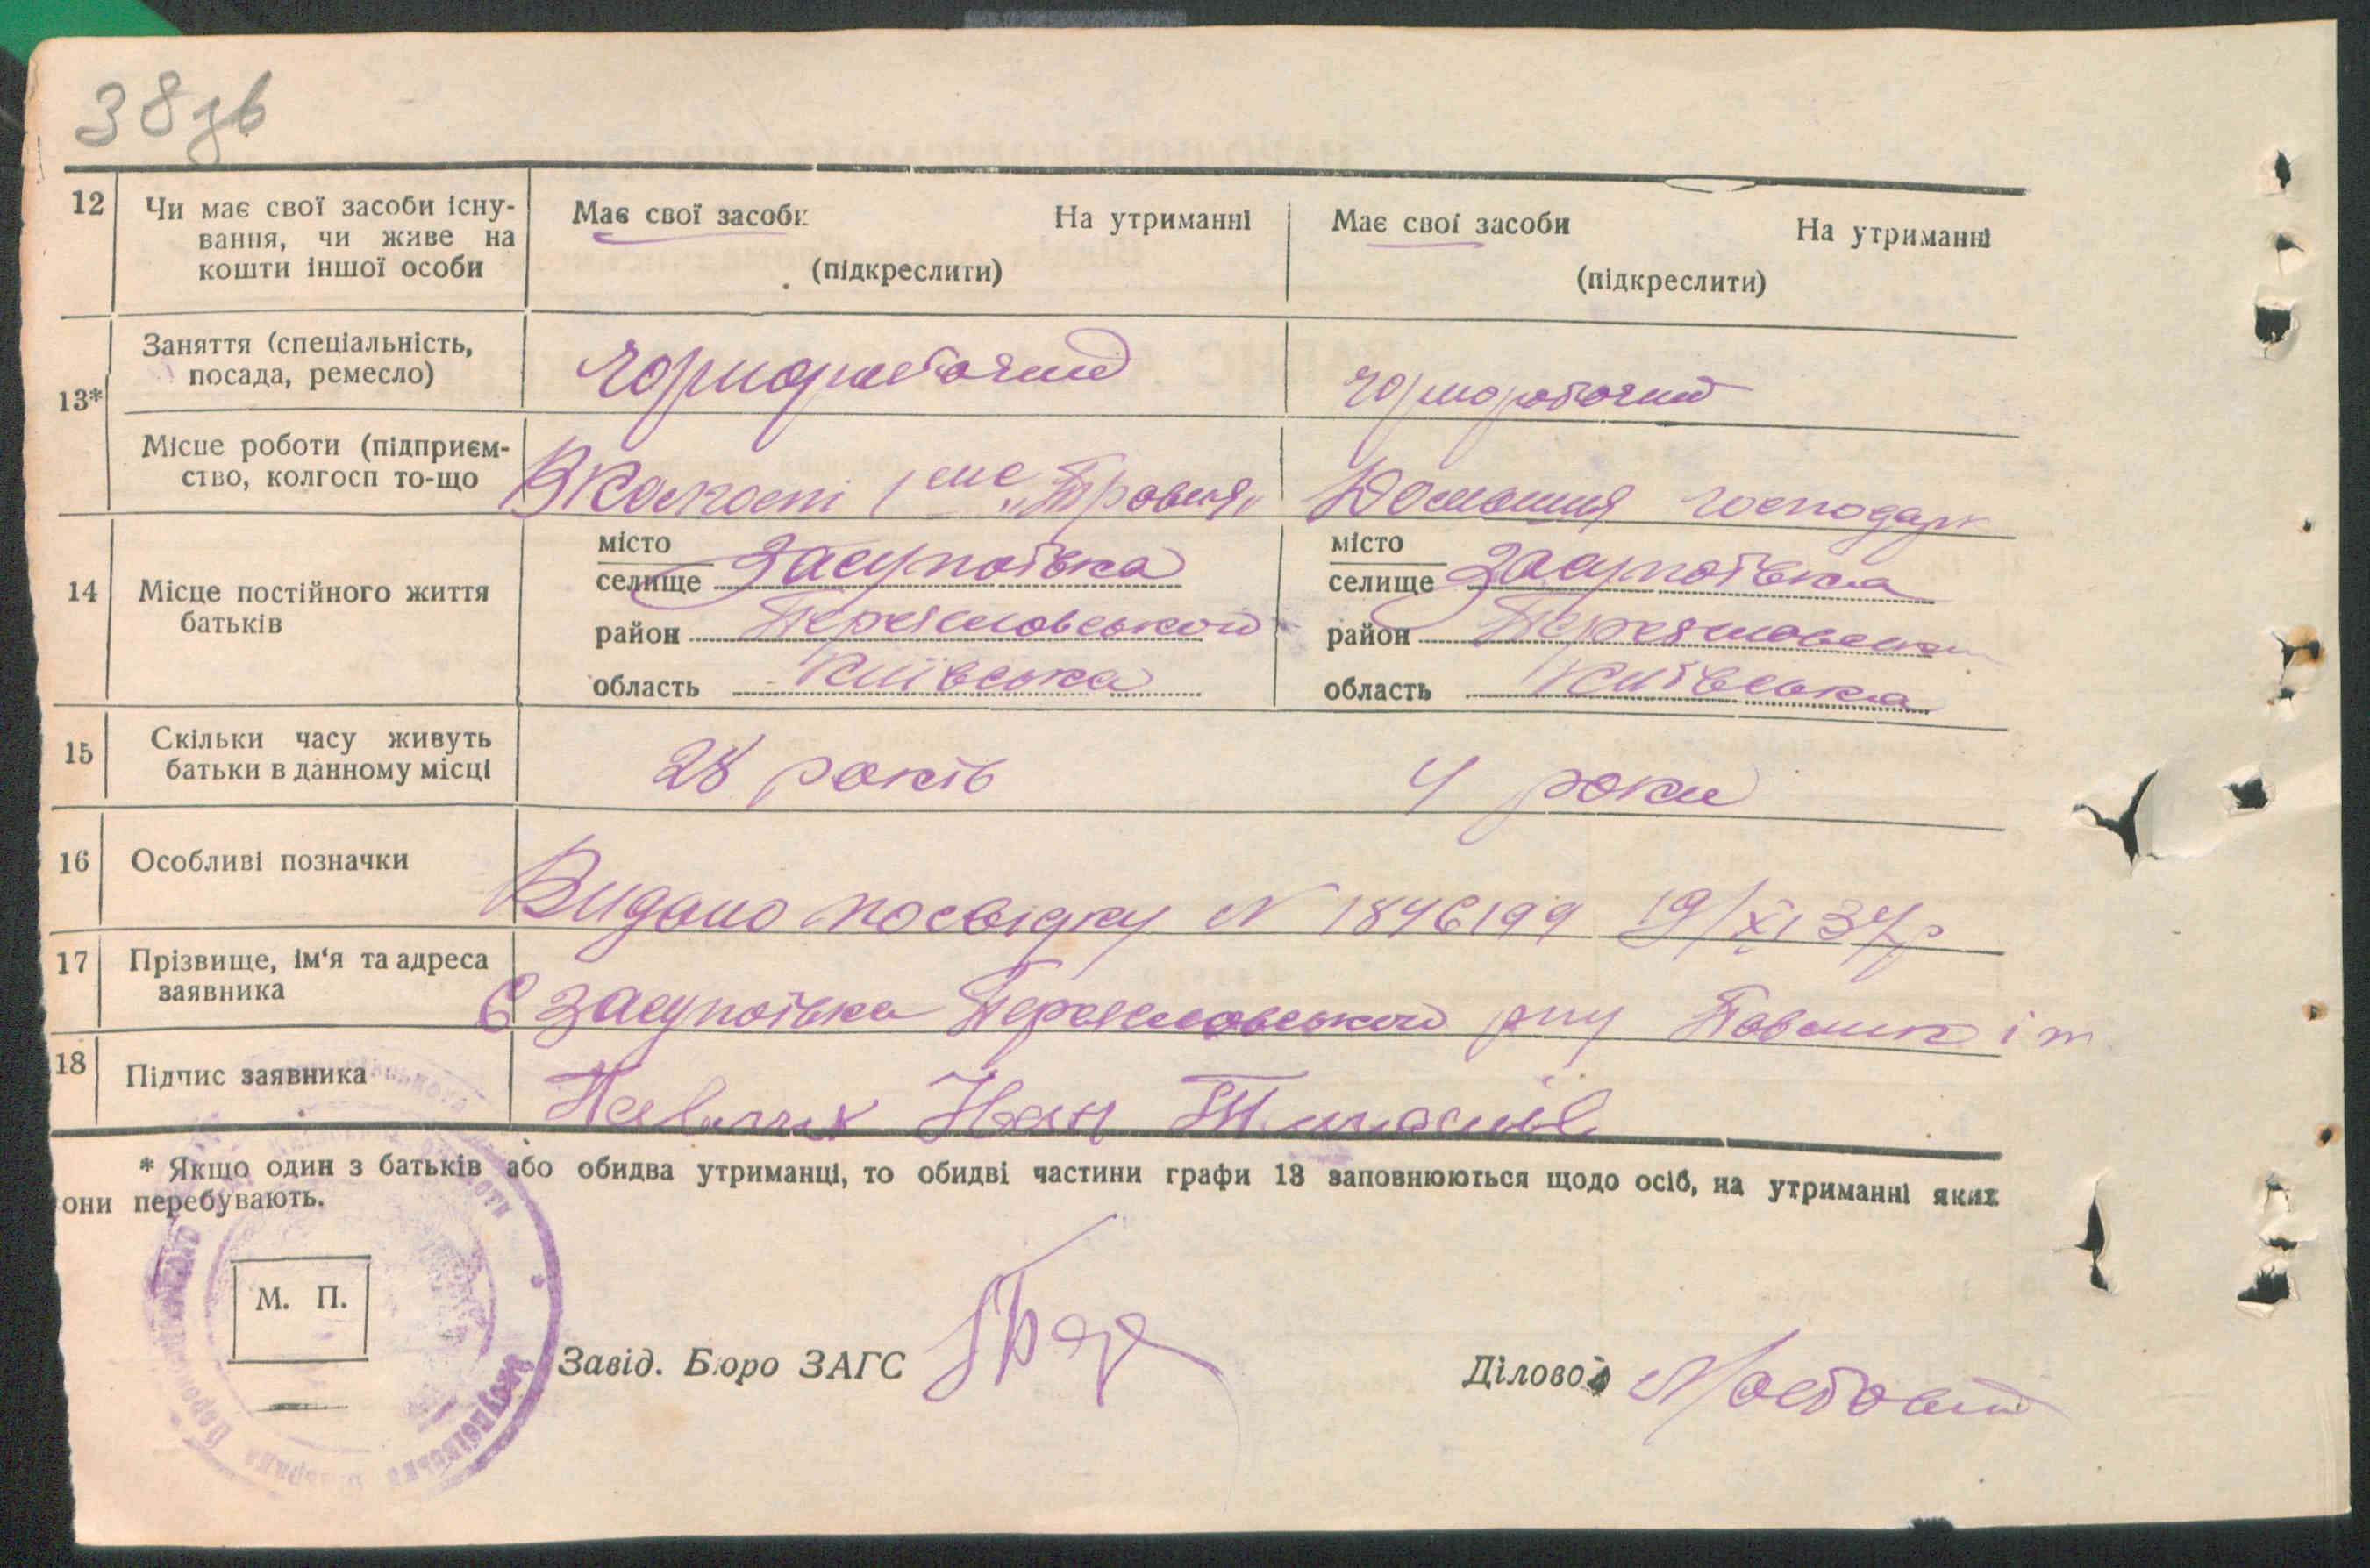 38зв
12 Чи має свої засоби існу- Має свої засоби На утриманні Має свої засоби На утриманні
вання, чи живе на
кошти іншої особи (підкреслити) (підкреслити)
Заняття (спеціальність, чорноробочий чорноробочий
посада, ремесло)
13*
Місце роботи (підприєм-
ство, колгосп то-що В Колгоспі 1ше „Травня" Домашня господарк
місто Засупоївка місто Засупоївка
селище селище
14 Місце постійного життя
батьків
район Переяславського район
область Київська область Київська
15 Скільки часу живуть
батьки в данному місці 28 років 4 роки
16 Особливі позначки
Видано посвідку N 1846199 19/XI 37р
17 Прізвище, ім'я та адреса
заявника С Засупоївка Переяславського рну Павлик і т
18 Підпис заявника Павлик Іван
* Якщо один з батьків або обидва утриманці, то обидві частини графи 13 заповнюються щодо осіб, на утриманні яких
они перебувають.
М. П.
Завід. Бюро ЗАГС
Діловод